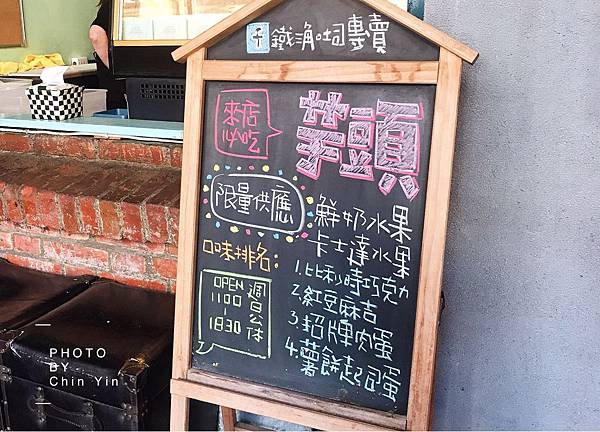 千 鐵涌吐司專賣
來店
必吃
芋頭
限量供應
鮮奶水果
卡士達水果
口味排名:
1.比利時巧克力
2.紅豆麻吉
3.招牌肉蛋
4.薯餅起司蛋
OPEN
1100
-
1830
週日公休
PHOTO
BY
Chin Yin